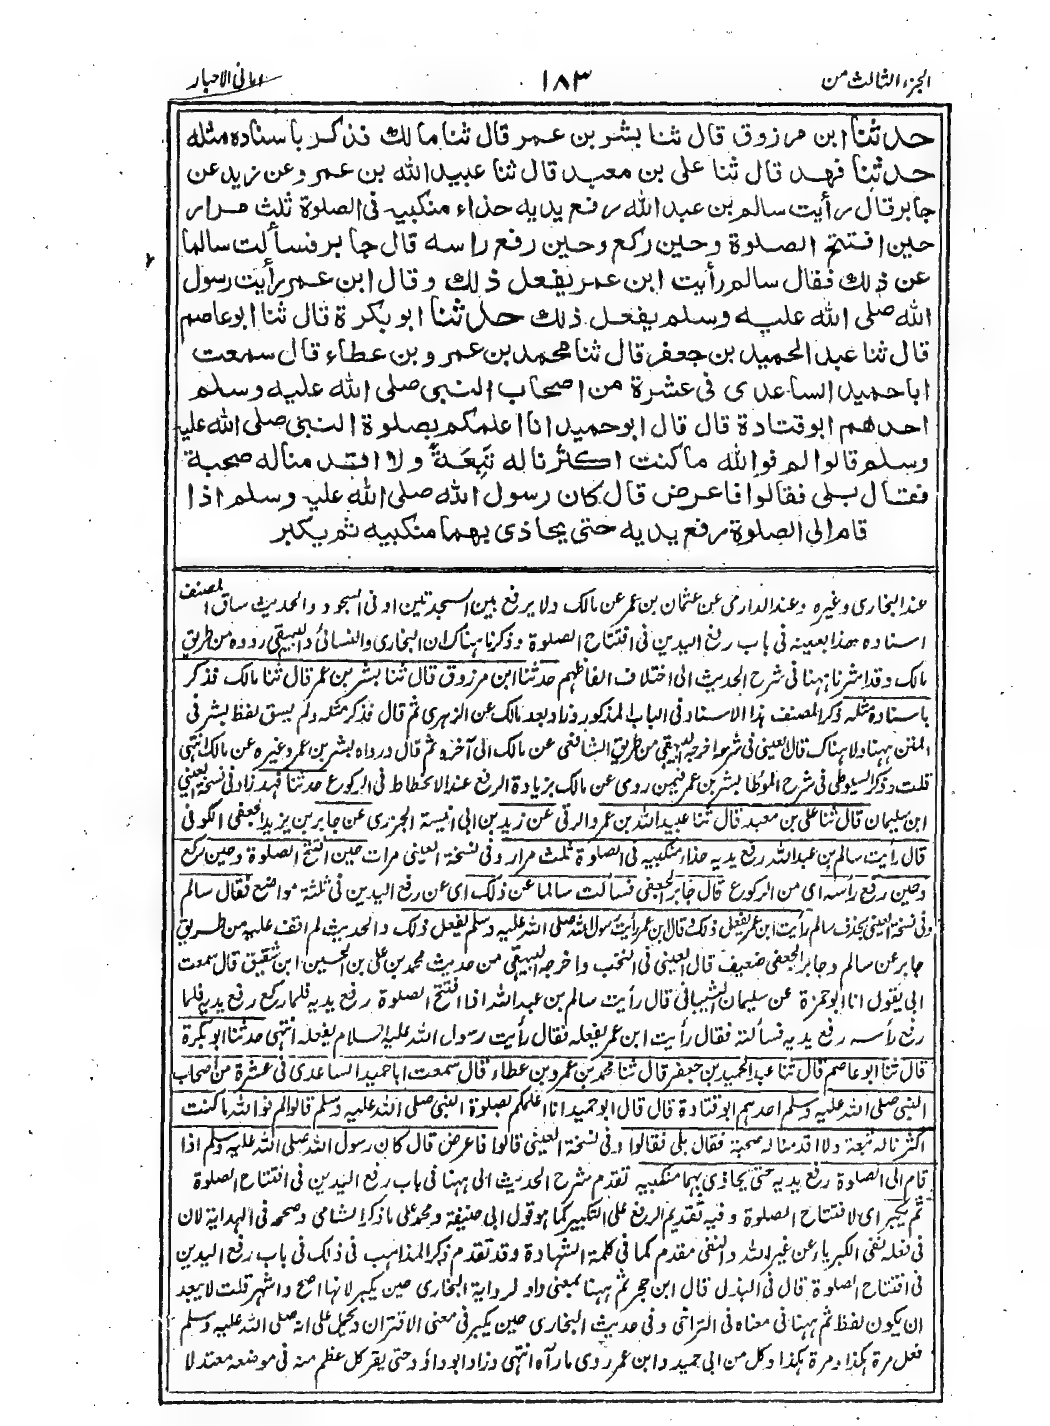 الجزء الثالث من ١٨٣ امانی الاحبار
حدثنا ابن مرزوق قال ثنا بشر بن عمر قال ثنا مالك فذكر باسناده مثله
حدثنا فهد قال ثنا علی بن معبد قال ثنا عبيد الله بن عمرو عن زيد عن
جابر قال رأيت سالم بن عبد الله رفع يديه حذاء منكبيه فی الصلوة ثلث مرار
حين افتتح الصلوة وحين ركع وحين رفع راسه قال جابر فسألت سالما
عن ذلك فقال سالم رأيت ابن عمر يفعل ذلك وقال ابن عمر رأيت رسول
الله صلی الله عليه وسلم يفعل ذلك حدثنا ابو بكرة قال ثنا ابو عاصم
قال ثنا عبد الحميد بن جعفر قال ثنا محمد بن عمرو بن عطاء قال سمعت
ابا حميد الساعدی فی عشرة من اصحاب النبی صلی الله عليه وسلم
احدهم ابو قتادة قال قال ابو حميد انا اعلمكم بصلوة النبی صلی الله عليه
وسلم قالوا لم فوالله ما كنت اكثرنا له تبعة ولا اقدمنا له صحبة
فقال بلی فقالوا فاعرض قال كان رسول الله صلی الله عليه وسلم اذا
قام الی الصلوة رفع يديه حتی يحاذی بهما منكبيه ثم يكبر
عند البخاری وغيره وعند الدارمی عن عثمان بن عمر عن مالك ولا يرفع بين السجدتين او فی السجود والحديث ساق المصنف
اسناده هذا بعينه فی باب رفع اليدين فی افتتاح الصلوة وذكرنا هناك ان البخاری والنسائی والبيهقی رووه من طريق
مالك وقد اشرنا ههنا فی شرح الحديث الی اختلاف الفاظهم حدثنا ابن مرزوق قال ثنا بشر بن عمر قال ثنا مالك فذكر
باسناده مثله ذكر المصنف هذا الاسناد فی الباب المذكور وزاد بعد مالك عن الزهری ثم قال فذكر مثله ولم يسق لفظ بشر فی
المتن ههنا ولا هناك قال العينی فی شرحه اخرجه البيهقی من طريق الشافعی عن مالك الی آخره ثم قال ورواه بشر بن عمر وغيره عن مالك انتهی
قلت وذكر السيوطی فی شرح الموطا بشر بن عمر فيمن روی عن مالك بزيادة الرفع عند الانحطاط فی الركوع حدثنا فهد زاد فی نسخة العينی
ابن سليمان قال ثنا علی بن معبد قال ثنا عبيد الله بن عمرو الرقی عن زيد بن ابی انيسة الجزری عن جابر بن يزيد الجعفی الكوفی
قال رأيت سالم بن عبد الله رفع يديه حذاء منكبيه فی الصلوة ثلث مرار وفی نسخة العينی مرات حين افتتح الصلوة وحين ركع
وحين رفع رأسه ای من الركوع قال جابر الجعفی فسألت سالما عن ذلك ای عن رفع اليدين فی ثلثة مواضع فقال سالم
وفی نسخة العينی بحذف سالم رأيت ابن عمر يفعل ذلك وقال ابن عمر رأيت رسول الله صلی الله عليه وسلم يفعل ذلك والحديث لم اقف عليه من طريق
جابر عن سالم وجابر الجعفی ضعيف قال العينی فی النخب واخرجه البيهقی من حديث محمد بن علی بن الحسين ابن شقيق قال سمعت
ابی يقول انا ابو حمزة عن سليمان الشيبانی قال رأيت سالم بن عبد الله اذا افتتح الصلوة رفع يديه فلما ركع رفع يديه فلما
رفع رأسه رفع يديه فسألته فقال رأيت ابن عمر يفعله فقال رأيت رسول الله عليه السلام يفعله انتهی حدثنا ابو بكرة
قال ثنا ابو عاصم قال ثنا عبد الحميد بن جعفر قال ثنا محمد بن عمرو بن عطاء قال سمعت ابا حميد الساعدی فی عشرة من اصحاب
النبی صلی الله عليه وسلم احدهم ابو قتادة قال قال ابو حميد انا اعلمكم بصلوة النبی صلی الله عليه وسلم قالوا لم فوالله ما كنت
اكثرنا له تبعة ولا اقدمنا له صحبة فقال بلی فقالوا وفی نسخة العينی قالوا فاعرض قال كان رسول الله صلی الله عليه وسلم اذا
قام الی الصلوة رفع يديه حتی يحاذی بهما منكبيه تقدم شرح الحديث الی ههنا فی باب رفع اليدين فی افتتاح الصلوة
ثم يكبر ای لافتتاح الصلوة وفيه تقديم الرفع علی التكبير كما هو قول ابی حنيفة ومحمد علی ما ذكر الشامی وصححه فی الهداية لان
فی فعله نفی الكبرياء عن غير الله والنفی مقدم كما فی كلمة الشهادة وقد تقدم ذكر المذاهب فی ذلك فی باب رفع اليدين
فی افتتاح الصلوة قال فی البذل قال ابن حجر ثم ههنا بمعنی واو لرواية البخاری حين يكبر لانها اصح واشهر قلت لا يبعد
ان يكون لفظ ثم ههنا فی معناه فی التراخی وفی حديث البخاری حين يكبر فی معنی الاقتران ويحمل علی انه صلی الله عليه وسلم
فعل مرة هكذا ومرة هكذا وكل من ابی حميد وابن عمر روی ما رآه انتهی وزاد ابو داؤد حتی يقر كل عظم منه فی موضعه معتدلا